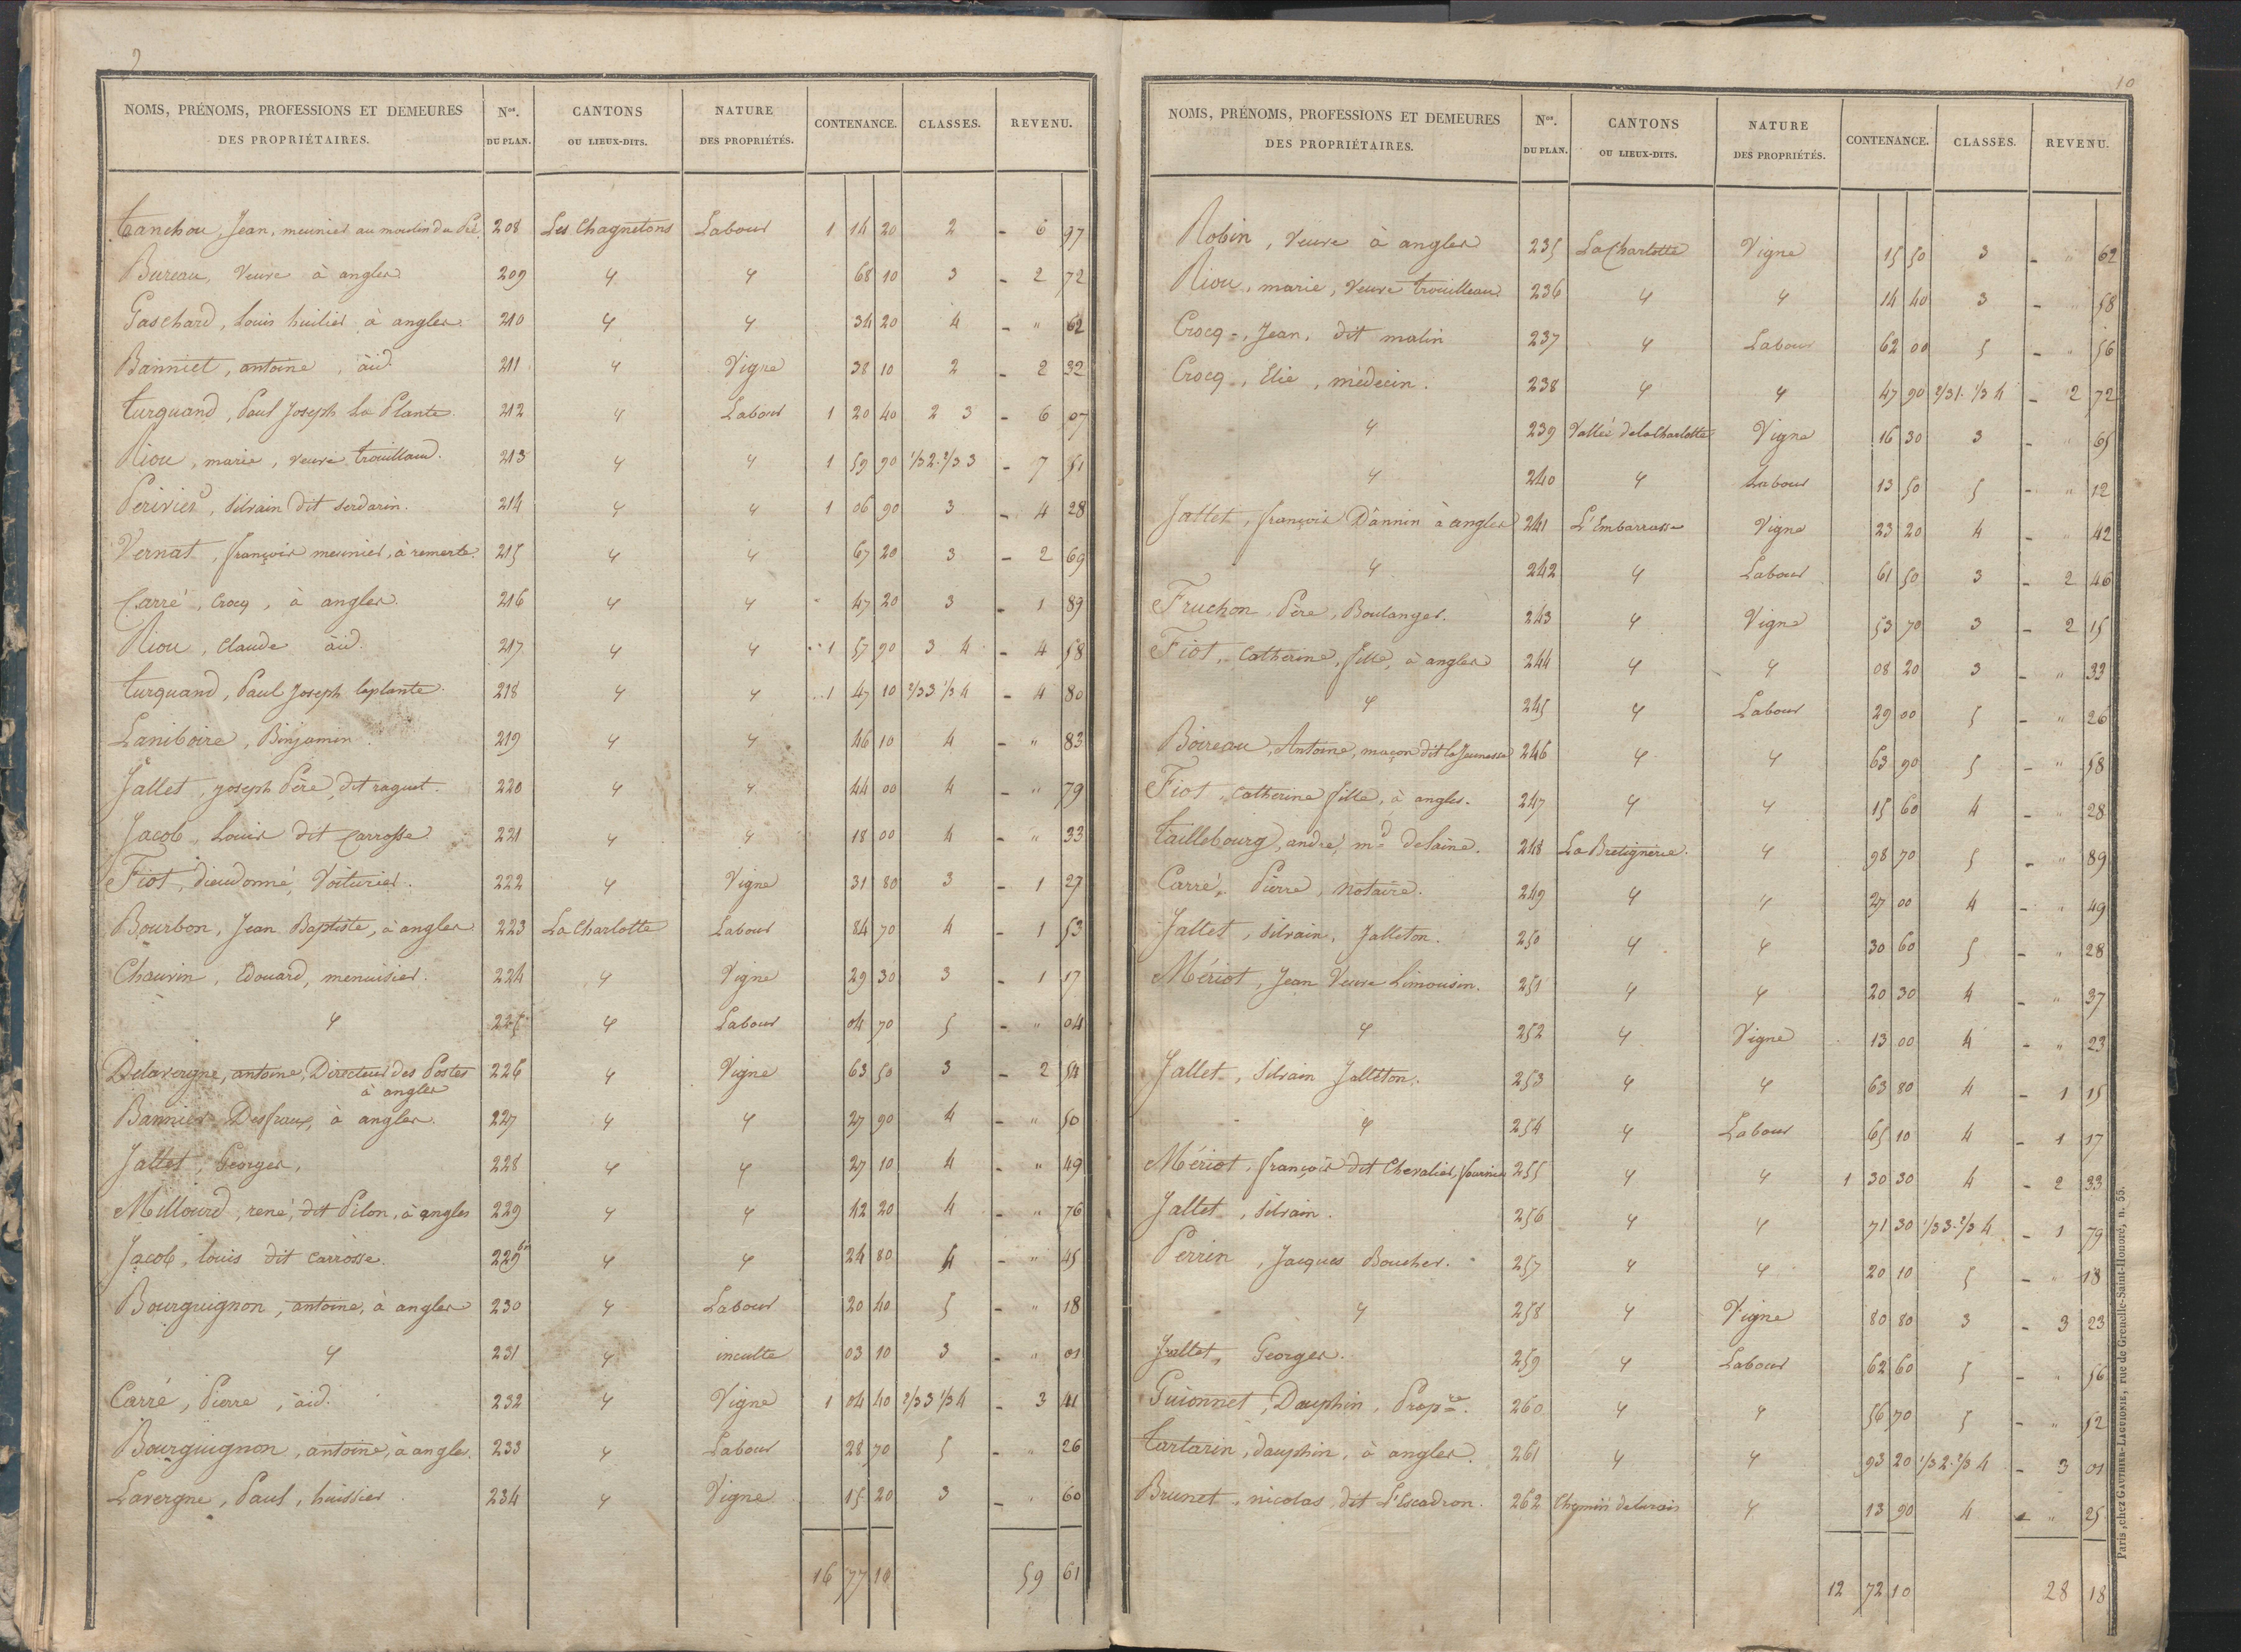 9
NOMS, PRÉNOMS, PROFESSIONS ET DEMEURES DES PROPRIÉTAIRES. Nos. DU PLAN. CANTONS OU LIEUX-DITS. NATURE DES PROPRIÉTÉS. CONTENANCE. CLASSES. REVENU.
Tanchou, Jean, meunier au moulin du 208 Les Chagnetons Labour 1 14 20 2 - 6 97
Bureau, Veuve à angles 209 4 4 68 10 3 - 2 72
Gaschard, Louis huilier à angles 210 4 4 34 20 4 - " 62
Banniet, antoine, àid. 211 4 Vigne 38 10 2 - 2 32
turquand, Paul Joseph La Plante. 212 4 Labour 1 20 40 2 3 - 6 07
Riou, marie, veuve trouillaud. 213 4 4 1 59 90 1/3 2. 2/3 3 - 7 51
Perivier, silvain dit serdarin. 214 4 4 1 06 90 3 - 4 28
Vernat, françois meunier, à remerte. 215 4 4 67 20 3 - 2 69
Carré, Crocq, à angles. 216 4 4 47 20 3 - 1 89
Riou, Claude àid. 217 4 4 1 57 90 3 4 - 4 58
turquand, Paul Joseph laplante. 218 4 4 1 47 10 2/3 3 1/3 4 - 4 80
Laniboire, Binjamin. 219 4 4 46 10 4 - " 83
Jallet, joseph Père, dit raguet. 220 4 4 44 00 4 - " 79
Jacob, Louis dit Carrosse 221 4 4 18 00 4 - " 33
Fiot, dieudonné, Voiturier. 222 4 Vigne 31 80 3 - 1 27
Bourbon, Jean Baptiste, à angles 223 La Charlotte Labour 84 70 4 - 1 53
Chauvin, Edouard, menuisier. 224 4 Vigne 29 30 3 - 1 17
4 225 4 Labour 04 70 5 - " 04
Delavergne, antoine, Directeur des Postes 226 4 Vigne 63 50 3 - 2 54
à angles
Bannier Desfraux, à angles. 227 4 4 27 90 4 - " 50
Jallet, Georges, 228 4 4 27 10 4 - " 49
Millourd, rené, dit Pilon, à angles 229 4 4 42 20 4 - " 76
Jacob, louis dit carrosse. 229 bis 4 4 24 80 4 - " 45
Bourguignon, antoine, à angles 230 4 Labour 20 40 5 - " 18
4 231 4 inculte 03 10 3 - " 01
Carré, Pierre, àid. 232 4 Vigne 1 04 40 2/3 3 1/3 4 - 3 41
Bourguignon, antoine, à angles. 233 4 Labour 28 70 5 - " 26
Lavergne, Paul, huissier. 234 4 Vigne 15 20 3 - " 60
16 77 10 59 61
10
NOMS, PRÉNOMS, PROFESSIONS ET DEMEURES DES PROPRIÉTAIRES. Nos. DU PLAN. CANTONS OU LIEUX-DITS. NATURE DES PROPRIÉTÉS. CONTENANCE. CLASSES. REVENU.
Robin, Veuve à angles 235 La Charlotte Vigne 15 50 3 - " 62
Riou, marie, Veuve trouilleau. 236 4 4 14 40 3 - " 58
Crocq, Jean, dit malin 237 4 Labour 62 00 5 - " 56
Crocq, Elie, médecin. 238 4 4 47 90 2/3 1. 1/3 4 - 2 72
4 239 Vallée de la Charlotte Vigne 16 30 3 - " 65
4 240 4 Labour 13 50 5 - " 12
Jallet, françois Dannin à angles 241 L'Embarrasse Vigne 23 20 4 - " 42
4 242 4 Labour 61 50 3 - 2 46
Fruchon, Père, Boulanger. 243 4 Vigne 53 70 3 - 2 15
Fiot, Catherine, fille, à angles 244 4 4 08 20 3 - " 33
4 245 4 Labour 29 00 5 - " 26
Boireau, Antoine, maçon dit la Jeunesse 246 4 4 63 90 5 - " 58
Fiot, Catherine fille, à angles. 247 4 4 15 60 4 - " 28
taillebourg, andré, md delaine. 248 La Bretignerie. 4 98 70 5 - " 89
Carré, Pierre, notaire. 249 4 4 27 00 4 - " 49
Jallet, silvain, Jalleton. 250 4 4 30 60 5 - " 28
Mériot, Jean Veuve Limousin. 251 4 4 20 30 4 - " 37
4 252 4 Vigne 13 00 4 - " 23
Jallet, Silvain Jalleton. 253 4 4 63 80 4 - 1 15
4 254 4 Labour 65 10 4 - 1 17
Mériot, françois dit Chevalier, fournier 255 4 4 1 30 30 4 - 2 33
Jallet, silvain. 256 4 4 71 30 1/3 3. 2/3 4 - 1 79
Perrin, Jacques Boucher. 257 4 4 20 10 5 - " 18
4 258 4 Vigne 80 80 3 - 3 23
Jallet, Georges. 259 4 Labour 62 60 5 - " 56
Guionnet, Dauphin, Propre. 260 4 4 56 70 5 - " 52
tartarin, dauphin, à angles. 261 4 4 93 20 1/3 2. 2/3 4 - 3 01
Brunet, nicolas, dit L'Escadron. 262 Chemin delurais 4 13 90 4 - " 25
12 72 10 28 18
Paris, chez GAUTHIER-LAGUIONIE, rue de Grenelle-Saint-Honoré, n. 55.